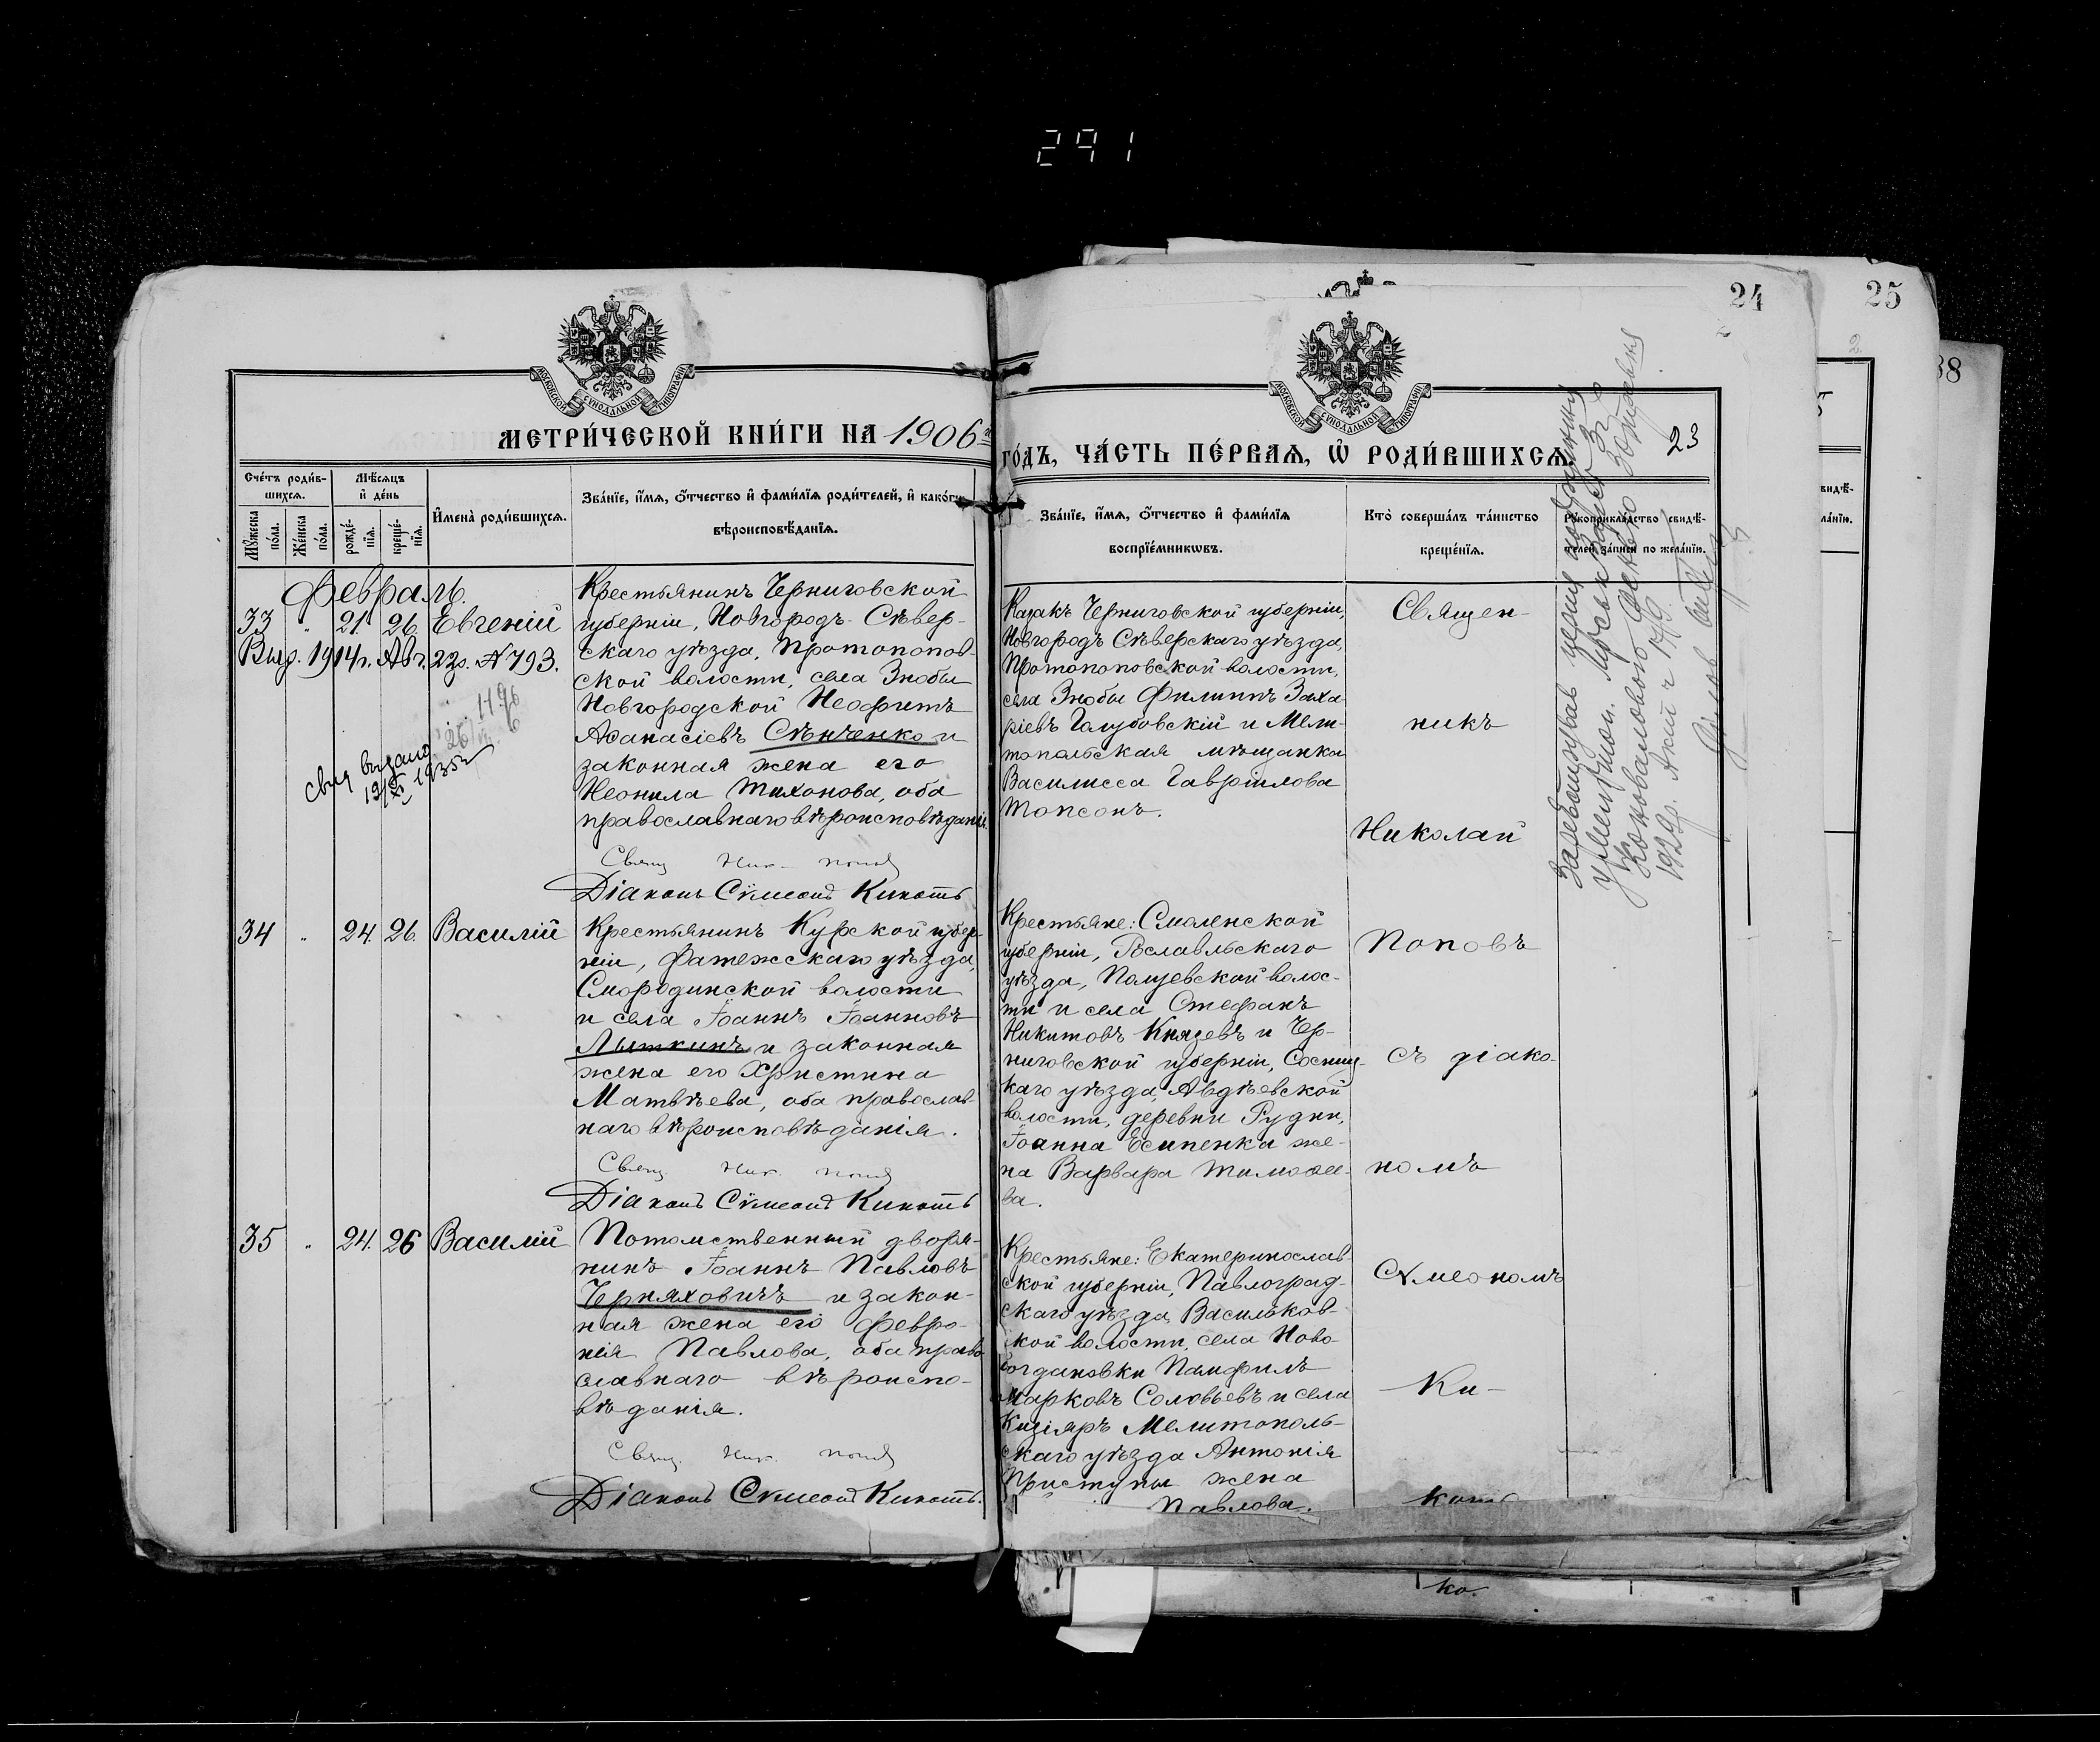 291
24
25
38
МОСКОВСКОЙ СУНОДАЛЬНОЙ ТИПОГРАФІИ
МОСКОВСКОЙ СУНОДАЛЬНОЙ ТИПОГРАФІИ
МЕТРИ́ЧЕСКОЙ КНИ́ГИ НА 1906
ГО́ДЪ, ЧА́СТЬ ПЕ́РВАѦ, Ѡ҆ РОДИ́ВШИХСѦ.
23
Сче́тъ роди́в-
шихсѧ.
Мꙋ́жеска по́ла.
Же́нска по́ла.
Мѣ́сѧцъ
и҆ де́нь
рожде́-
нїѧ.
креще́-
нїѧ.
И҆мена̀ роди́вшихсѧ.
Зва́нїе, и҆́мѧ, ѻ҆́тчество и҆ фами́лїѧ роди́телей, и҆ како́гѡ
вѣроисповѣ́данїѧ.
Зва́нїе, и҆́мѧ, ѻ҆́тчество и҆ фами́лїѧ
воспрїе́мникѡвъ.
Кто̀ соверша́лъ та́инство
креще́нїѧ.
Рꙋкоприкла́дство свидѣ́-
телей за́писи по жела́нїю.
Февраль.
33 " 21. 26. Евгеній
Выд. 1914г. Авг. 23д. № 793.
свид выдано
19/XI 1935г
Крестьянинъ Черниговской
губерніи, Новгородъ-Сѣвер-
скаго уѣзда, Протопопов-
ской волости, села Знобы
Новгородской Неофитъ
Аѳанасіевъ Сѣнченко и
законная жена его
Неонила Тихонова, оба
православнаго вѣроисповѣданія.
Свящ Ник. Попов
Діаконъ Сѵмеонъ Кикоть
Казакъ Черниговской губерніи,
Новгородъ Сѣверскаго уѣзда,
Протопоповской волости,
села Знобы Филиппъ Заха-
ріевъ Голубовскій и Мели-
топольская мѣщанка
Василисса Гавріилова
Топсонъ.
Священ-
никъ
Николай
34 " 24. 26. Василій
Крестьянинъ Курской губер-
ніи, Фатежскаго уѣзда,
Смородинской волости
и села Іоаннъ Іоанновъ
Лыткинъ и законная
жена его Христина
Матвѣева, оба православ-
наго вѣроисповѣданія.
Свящ. Ник. Попов
Діаконъ Сѵмеонъ Кикоть
Крестьяне: Смоленской
губерніи, Рославльскаго
уѣзда, волос-
ти и села Стефанъ
Никитовъ Князевъ и Чер-
ниговской губерніи, Сосниц-
каго уѣзда, Авдѣевской
волости, деревни Рудни,
Іоанна Есипенка же-
на Варвара Тимоѳее-
ва.
Поповъ
съ діако-
номъ
35 " 24. 26 Василій
Потомственный дворя-
нинъ Іоаннъ Павловъ
Черняховичъ и закон-
ная жена его Февро-
нія Павлова, оба право-
славнаго вѣроиспо-
вѣданія.
Свящ. Ник. Попов
Діаконъ Сѵмеонъ Кикоть.
Крестьяне: Екатеринослав-
ской губерніи, Павлоград-
скаго уѣзда, Васильков-
ской волости, села Ново-
богдановки Памфилъ
Марковъ Соловьевъ и села
Кизіяръ Мелитополь-
скаго уѣзда Антонія
Приступы жена
Павлова.
Сѵмеономъ
Ки-
коть
ко.